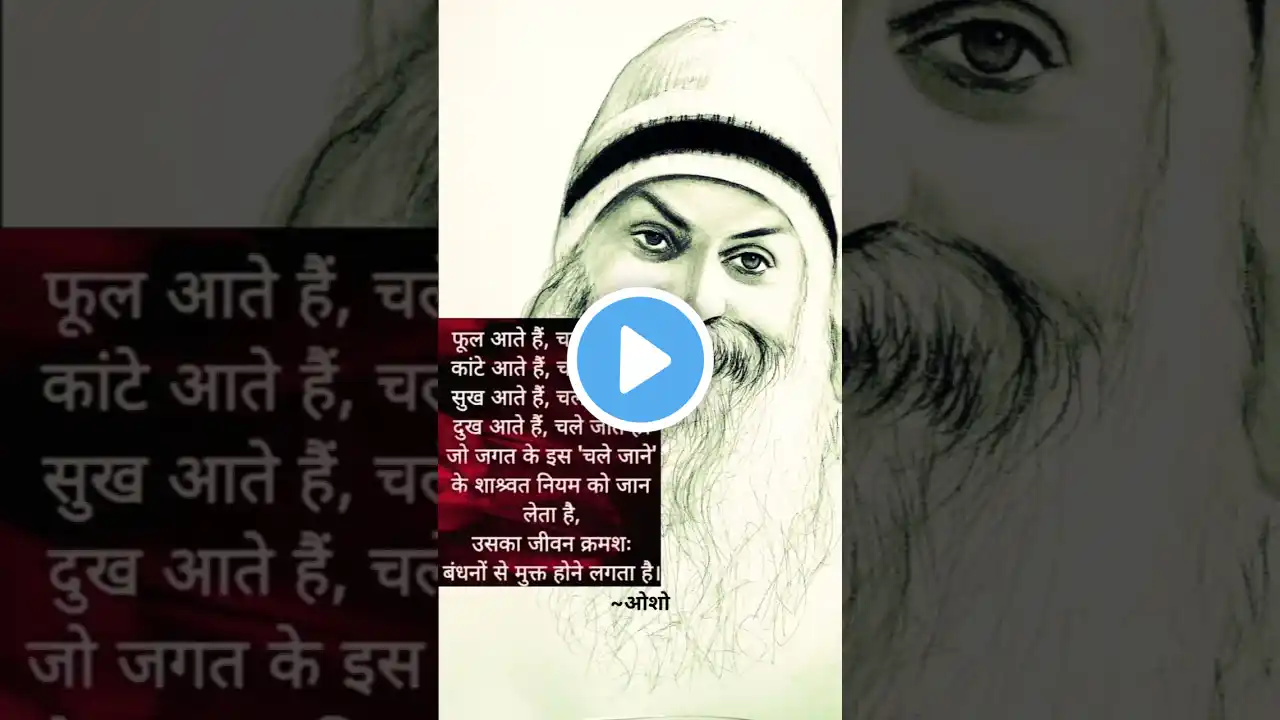 फूल आते हैं,
कांटे आते हैं,
सुख आते हैं,
दुख आते हैं, चले
जो जगत के इस 'चले जाने'
के शाश्र्वत नियम को जान
लेता है,
उसका जीवन क्रमशः
बंधनों से मुक्त होने लगता है।
~ओशो
फूल आते हैं,
कांटे आते हैं,
सुख आते हैं,
दुख आते हैं,
जो जगत के इस